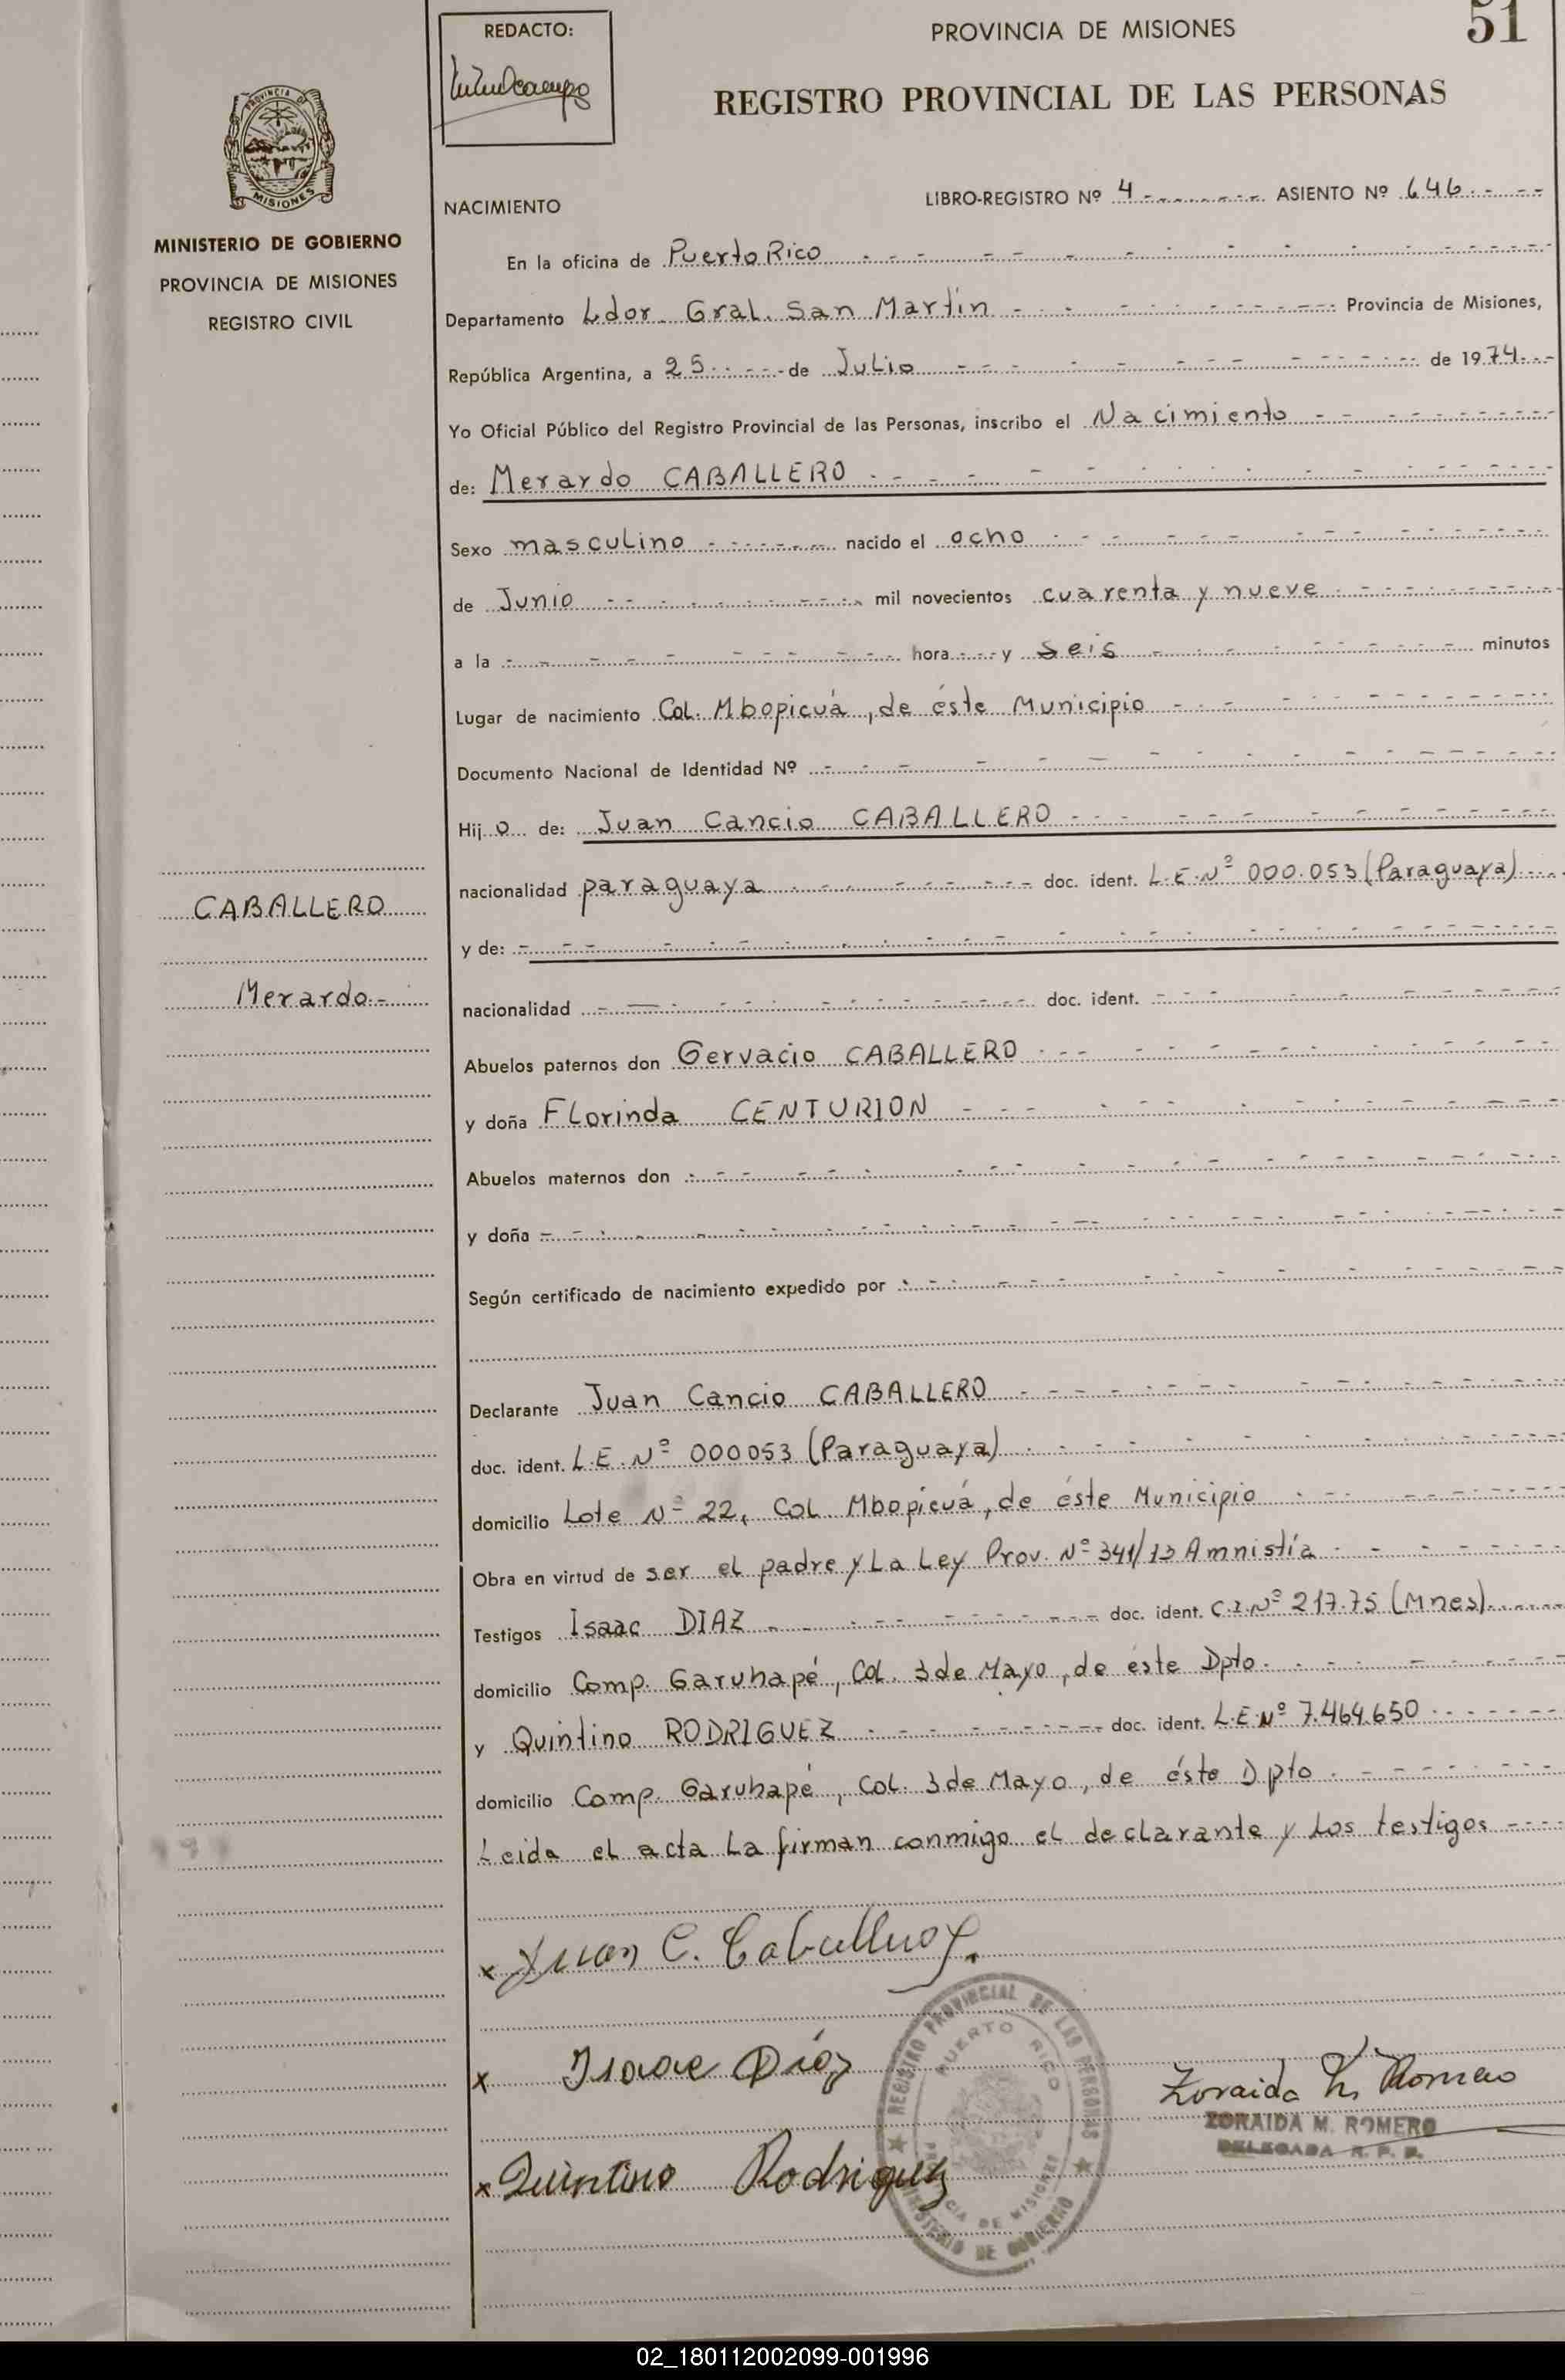 REDACTO:
PROVINCIA DE MISIONES
51
REGISTRO PROVINCIAL DE LAS PERSONAS
PROVINCIA DE
MISIONES
MINISTERIO DE GOBIERNO
PROVINCIA DE MISIONES
REGISTRO CIVIL
NACIMIENTO
LIBRO-REGISTRO Nº 4 ASIENTO Nº 646
En la oficina de Puerto Rico
Departamento Ldor. Gral. San Martín Provincia de Misiones,
República Argentina, a 25 de Julio de 1974
Yo Oficial Público del Registro Provincial de las Personas, inscribo el Nacimiento
de: Merardo CABALLERO
Sexo masculino nacido el ocho
de Junio mil novecientos cuarenta y nueve
a la hora y seis minutos
Lugar de nacimiento Col. Mbopicuá, de éste Municipio
Documento Nacional de Identidad Nº
Hij o de: Juan Cancio CABALLERO
nacionalidad paraguaya doc. ident. L.E.Nº 000.053 (Paraguaya)
y de:
nacionalidad doc. ident.
Abuelos paternos don Gervacio CABALLERO
y doña Florinda CENTURION
Abuelos maternos don
y doña
Según certificado de nacimiento expedido por
CABALLERO
Merardo.-
Declarante Juan Cancio CABALLERO
doc. ident. L.E.Nº 000053 (Paraguaya)
domicilio Lote Nº 22, Col. Mbopicuá, de éste Municipio
Obra en virtud de ser el padre y La Ley Prov. Nº 341/13 Amnistía
Testigos Isaac DIAZ doc. ident. C.I.Nº 217.75 (Mnes)
domicilio Comp. Garuhapé, Col. 3 de Mayo, de éste Dpto.
y Quintino RODRIGUEZ doc. ident. L.E.Nº 7.464.650
domicilio Comp. Garuhapé, Col. 3 de Mayo, de éste Dpto.
Leida el acta La firman conmigo el declarante y Los testigos
x Juan C. Caballero
x Isaac Díaz
x Quintino Rodriguez
REGISTRO PROVINCIAL DE LAS PERSONAS
PUERTO RICO
PROVINCIA DE MISIONES
MINISTERIO DE GOBIERNO
Zoraida M. Romero
ZORAIDA M. ROMERO
DELEGADA R. P. P.
02_180112002099-001996